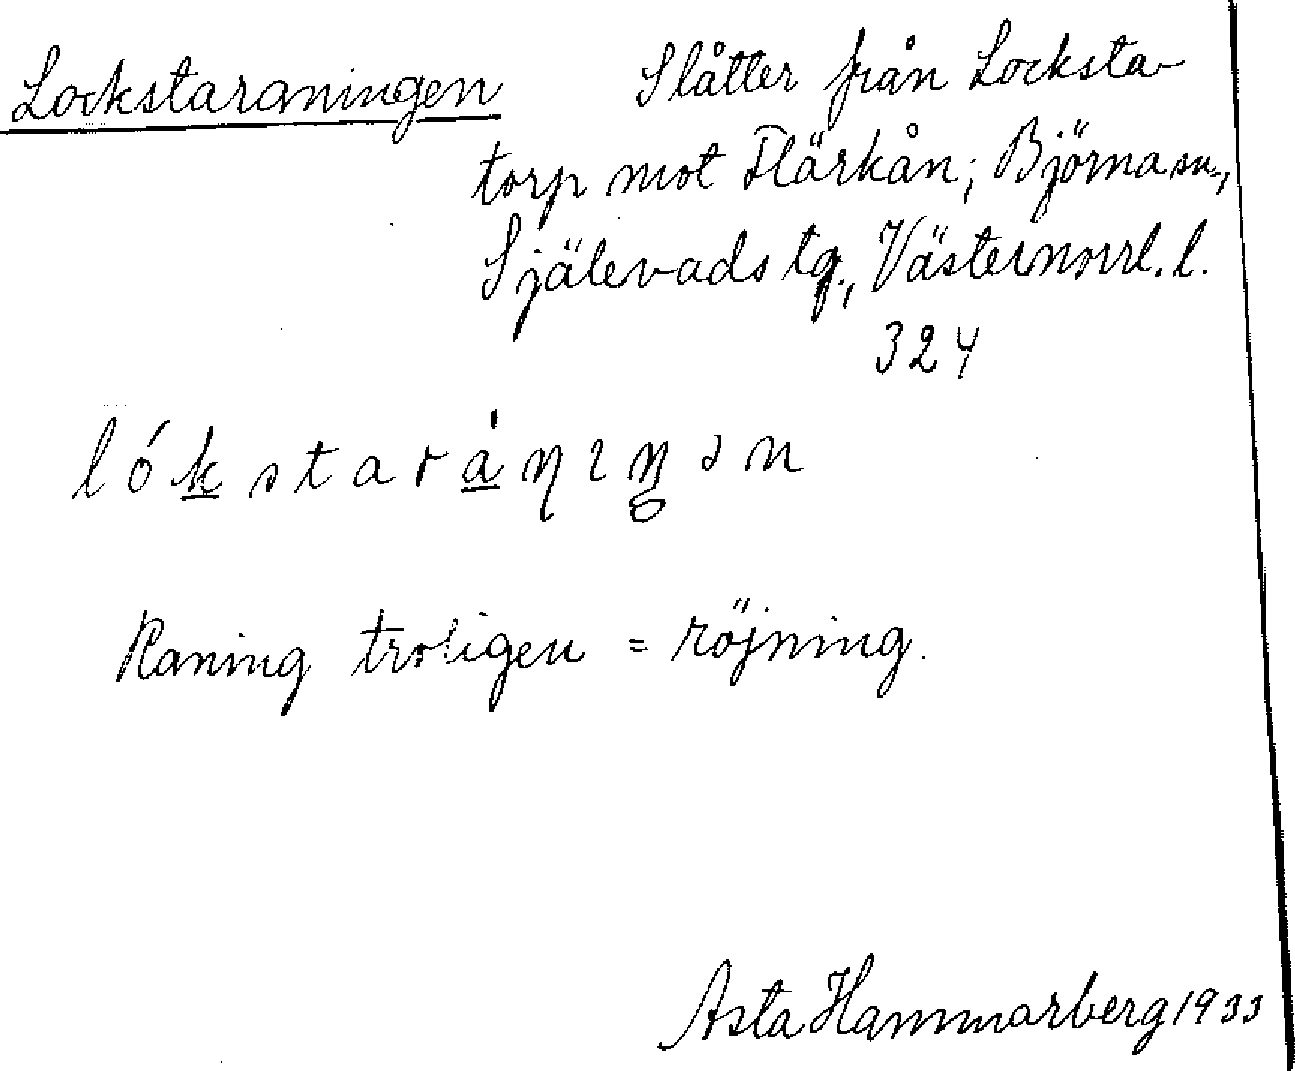 Lockstaraningen Slåtter från Locksta-
torp mot Flärkån; Björna sn.,
Själevads tg., Västernorrl. l.
324
Raning troligen = röjning.
Asta Hammarberg 1933